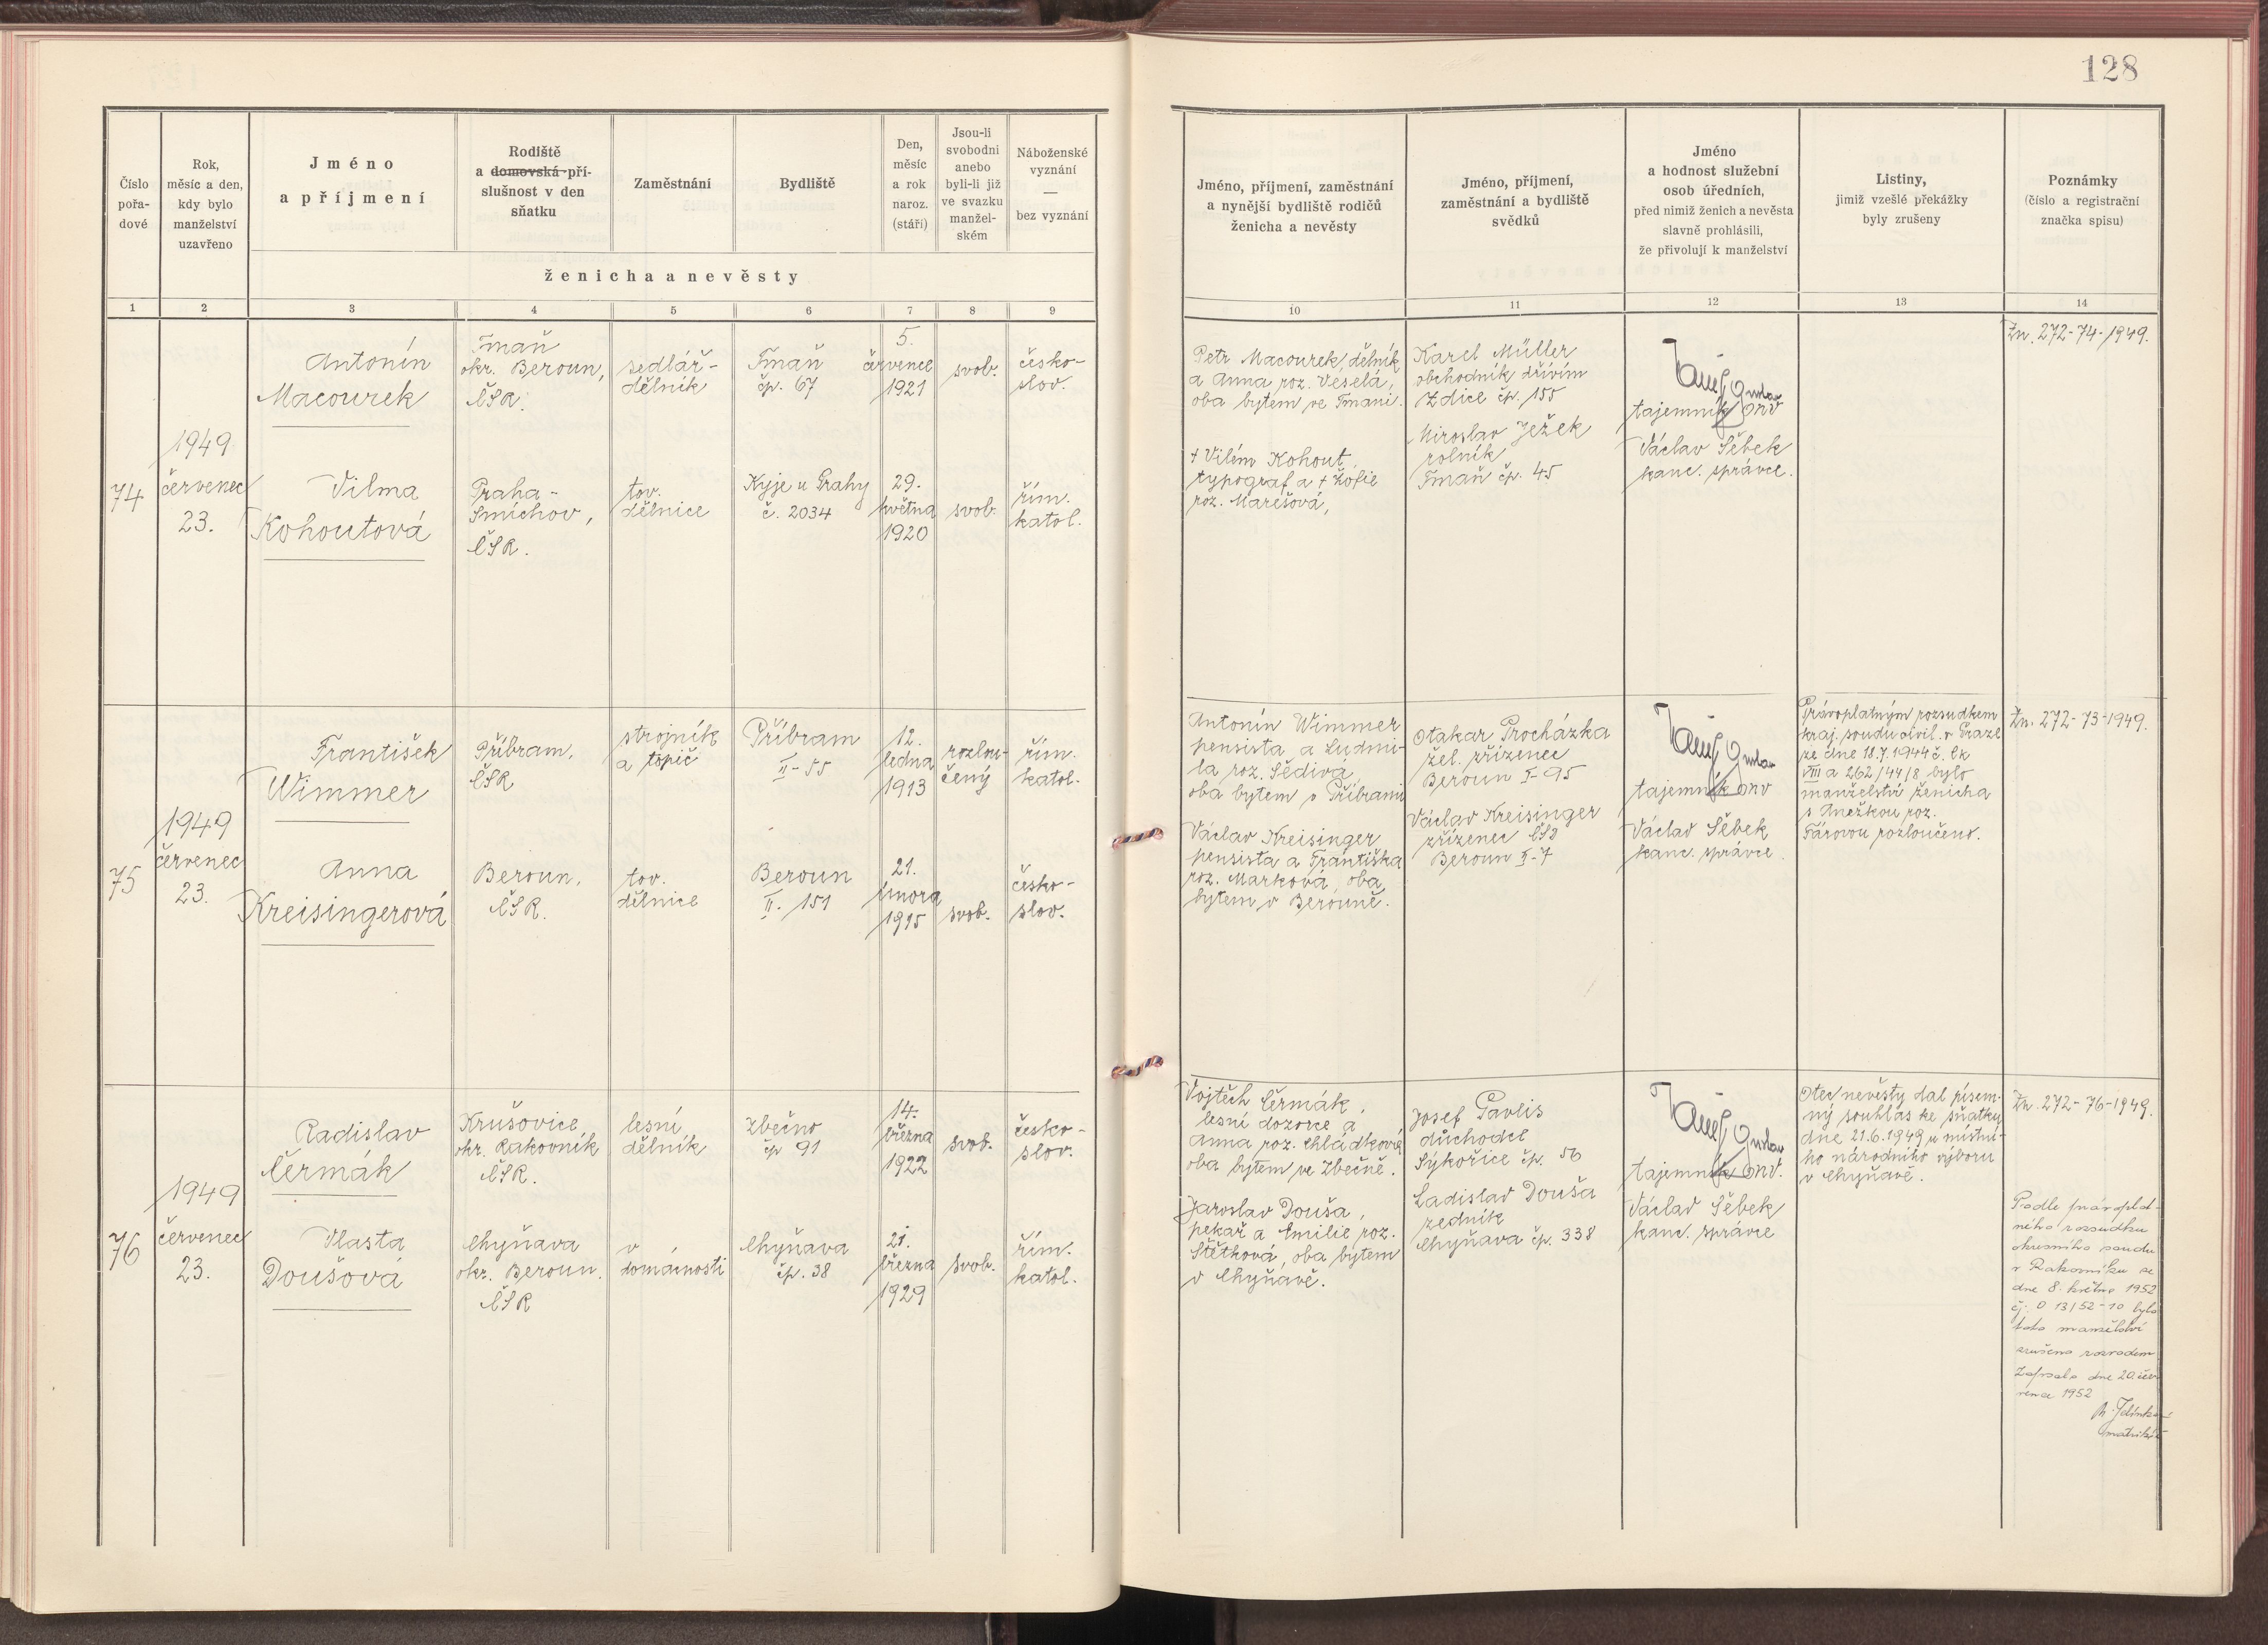 128
Číslo
pořa-
dové
Rok,
měsíc a den,
kdy bylo
manželství
uzavřeno
Jméno
a příjmení
Rodiště
a domovská pří-
slušnost v den
sňatku
Zaměstnání
Bydliště
Den,
měsíc
a rok
naroz.
(stáří)
Jsou-li
svobodni
anebo
byli-li již
ve svazku
manžel-
ském
Náboženské
vyznání
—
bez vyznání
ženicha a nevěsty
Jméno, příjmení, zaměstnání
a nynější bydliště rodičů
ženicha a nevěsty
Jméno, příjmení,
zaměstnání a bydliště
svědků
Jméno
a hodnost služební
osob úředních,
před nimiž ženich a nevěsta
slavně prohlásili,
že přivolují k manželství
Listiny,
jimiž vzešlé překážky
byly zrušeny
Poznámky
(číslo a registrační
značka spisu)
1 2 3 4 5 6 7 8 9 10 11 12 13 14
74
1949
červenec
23.
Antonín
Macourek
Tmaň
okr. Beroun,
ČSR.
sedlář-
dělník
Tmaň
čp. 67
5.
července
1921
svob.
česko-
slov.
Vilma
Kohoutová
Praha-
Smíchov,
ČSR.
tov.
dělnice
Kyje u Prahy
č. 2034
29.
května
1920
svob.
řím.
katol.
Petr Macourek, dělník
a Anna roz. Veselá,
oba bytem ve Tmani.
+ Vilém Kohout,
typograf a + Žofie
roz. Marešová,
Karel Müller
obchodník dřívím
Zdice čp. 155
Miroslav Ježek
rolník
Tmaň čp. 45
tajemník ONV
Václav Sěbek
kanc. správce.
Zn. 272-74-1949.
75
1949
červenec
23.
František
Wimmer
Příbram,
ČSR
strojník
a topič
Příbram
II-55
12.
ledna
1913
rozlou-
čený
řím.
katol.
Anna
Kreisingerová
Beroun,
ČSR.
tov.
dělnice
Beroun
II. 151
21.
února
1915
svob.
česko-
slov.
Antonín Wimmer
pensista a Ludmi-
la roz. Sědivá,
oba bytem v Příbrami
Václav Kreisinger
pensista a Františka
roz. Marková, oba
bytem v Berouně.
Otakar Procházka
žel. zřízenec
Beroun I-95
Václav Kreisinger
zřízenec ČSD
Beroun II-7
tajemník ONV
Václav Sěbek
kanc. správce.
Právoplatným rozsudkem
kraj. soudu civil. v Praze
ze dne 18.7.1944 č. Ck
VIII a 262/44/8 bylo
manželství ženicha
s Anežkou roz.
Fárovou rozloučeno.
Zn. 272-73-1949.
76
1949
červenec
23.
Radislav
Čermák
Krušovice
okr. Rakovník
ČSR.
lesní
dělník
Zbečno
čp 91
14.
března
1922
svob.
česko-
slov.
Vlasta
Doušová
Chyňava
okr. Beroun.
ČSR
v
domácnosti
Chyňava
čp. 38
21.
března
1929
svob.
řím.
katol.
Vojtěch Čermák,
lesní dozorce a
Anna roz. Chládková
oba bytem ve Zbečně.
Jaroslav Douša,
pekař a Emilie roz.
Štětková, oba bytem
v Chyňavě.
Josef Pavlis
důchodce
Sýkořice čp. 56
Ladislav Douša
zedník
Chyňava čp. 338
tajemník ONV.
Václav Sěbek
kanc. správce
Otec nevěsty dal písem-
ný souhlas ke sňatku
dne 21.6.1949 u místní-
ho národního výboru
v Chyňavě.
Zn. 272-76-1949.
Podle pravoplat-
ného rozsudku
okresního soudu
v Rakovníku ze
dne 8. května 1952
čj. O 13/52-10 bylo
toto manželství
zrušeno rozvodem
Zapsala dne 20. čer
vence 1952